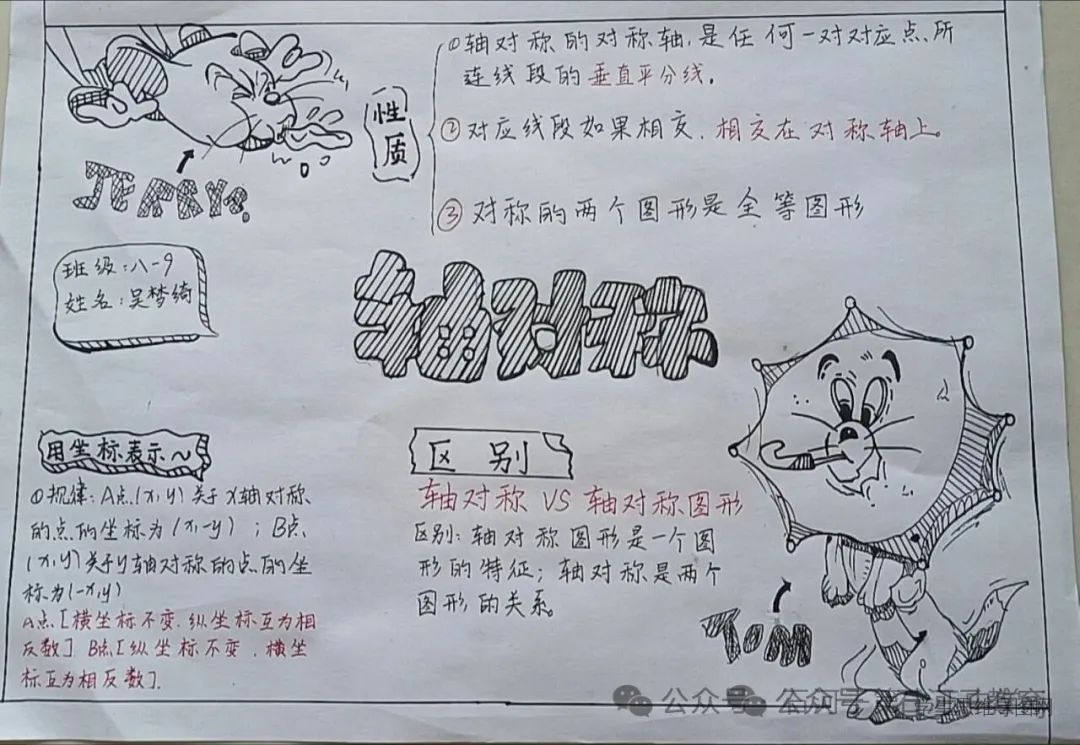 ①轴对称的对称轴,是任何一对对应点所
连线段的垂直平分线。
性质
②对应线段如果相交,相交在对称轴上。
③对称的两个图形是全等图形
JERRY
班级:八-9
姓名:吴梦绮
轴对称
用坐标表示~
①规律:A点(x,y)关于x轴对称
的点的坐标为(x,-y);B点
(x,y)关于y轴对称的点的坐
标为(-x,y)
A点[横坐标不变.纵坐标互为相
反数] B点[纵坐标不变.横坐
标互为相反数].
区别
轴对称 VS 轴对称图形
区别:轴对称图形是一个图
形的特征;轴对称是两个
图形的关系。
TOM
公众号 公众号